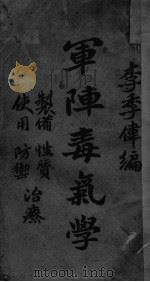 李季偉編
軍陣毒氣學
製備 性質
使用 防禦 治療
www.modutu.info